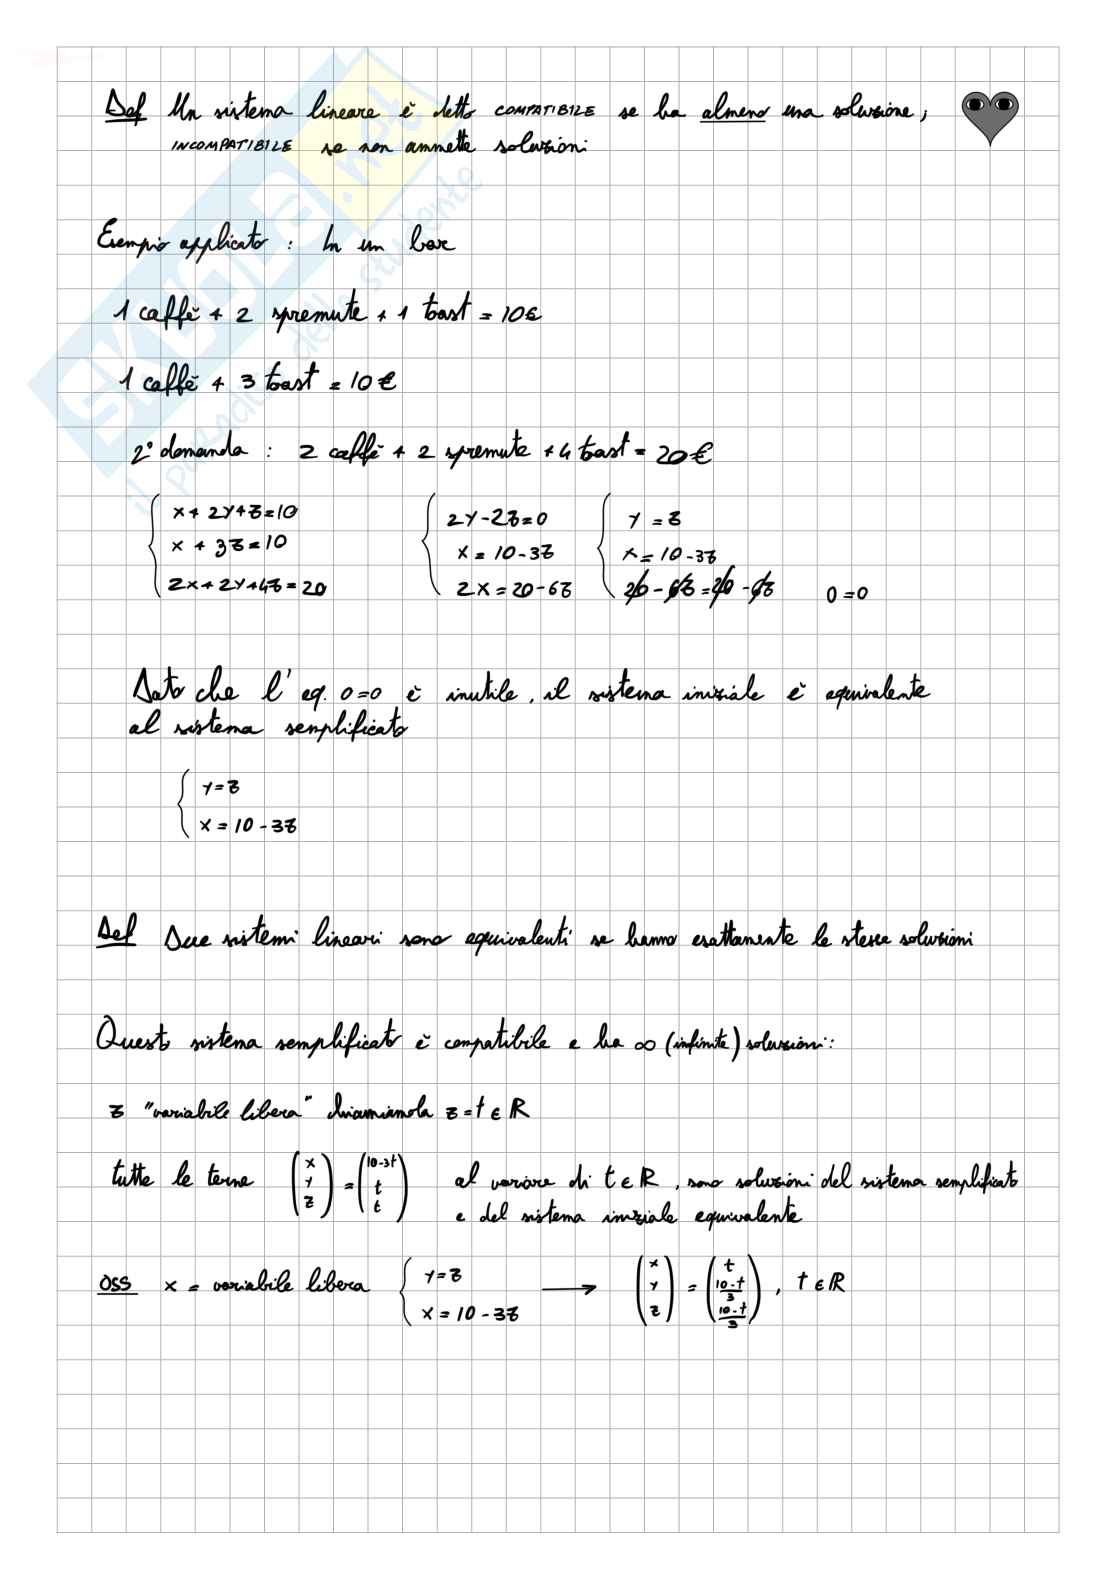 Def Un sistema lineare è detto COMPATIBILE se ha almeno una soluzione,
INCOMPATIBILE se non ammette soluzioni
Esempio applicato : In un bar
1 caffè + 2 spremute + 1 toast = 10€
1 caffè + 3 toast = 10 €
2° domanda : 2 caffè + 2 spremute + 4 toast = 20€
{ x + 2y + z = 10
x + 3z = 10
2x + 2y + 4z = 20
{ 2y - 2z = 0
x = 10 - 3z
2x = 20 - 6z
{ y = z
x = 10 - 3z
20 - 6z = 20 - 6z   0 = 0
Dato che l' eq. 0=0 è inutile, il sistema iniziale è equivalente
al sistema semplificato
{ y = z
x = 10 - 3z
Def Due sistemi lineari sono equivalenti se hanno esattamente le stesse soluzioni
Questo sistema semplificato è compatibile e ha ∞ (infinite) soluzioni:
z "variabile libera" chiamiamola z = t ∈ ℝ
tutte le terne (x y z) = (10-3t t t) al variare di t ∈ ℝ, sono soluzioni del sistema semplificato
e del sistema iniziale equivalente
OSS x = variabile libera { y = z ⟶ (x y z) = (t (10-t)/3 (10-t)/3), t ∈ ℝ
x = 10 - 3z
SKUOLA.net
il paradiso dello studente